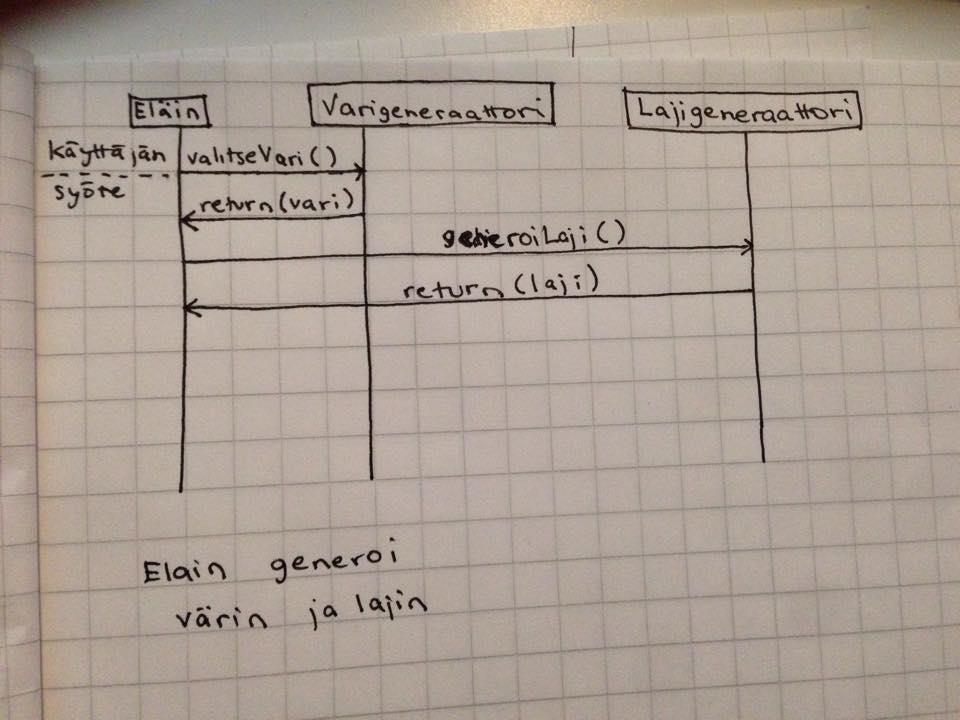 Eläin
Varigeneraattori
Lajigeneraattori
Käyttäjän
syöte
valitseVari()
return(vari)
generoiLaji()
return(laji)
Elain generoi
värin ja lajin